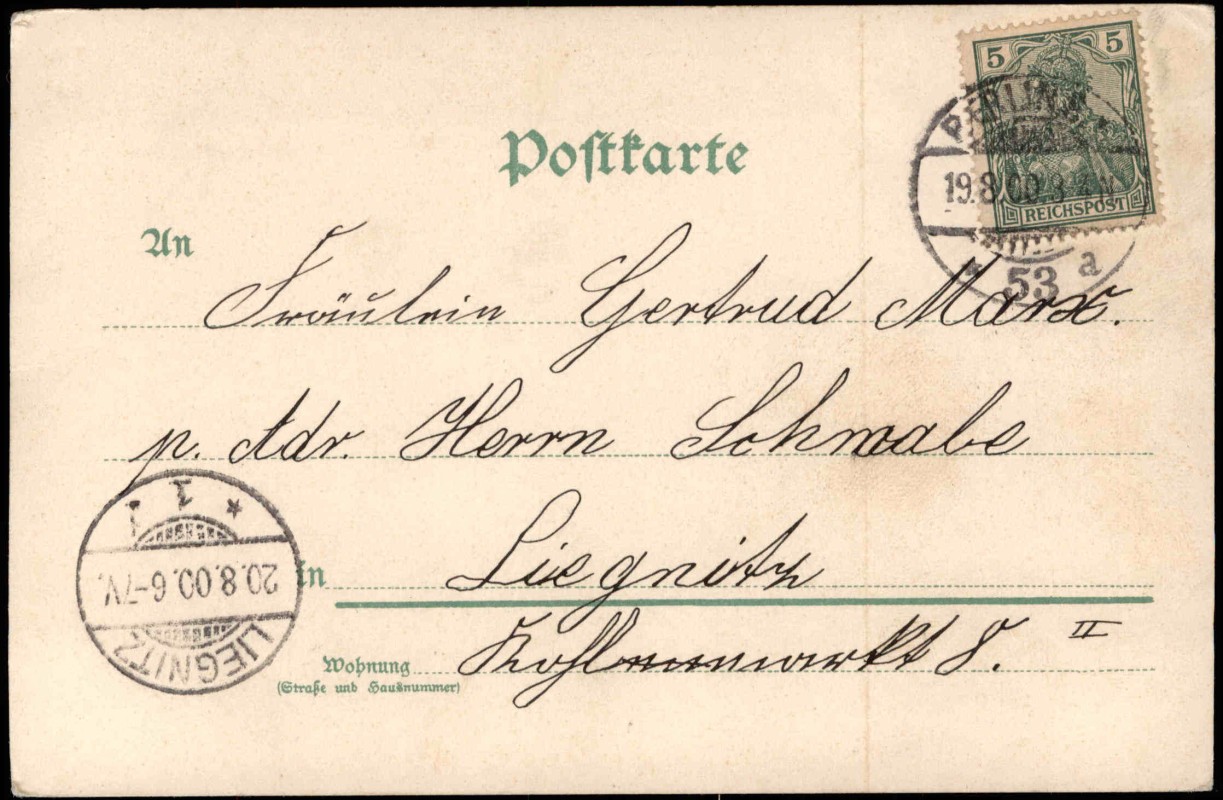 5 5
BERLIN
19.8.00.3-4N
REICHSPOST
* 53 a
Postkarte
An
Fräulein Gertrud Marx.
p. Adr. Herrn Schwabe
in Liegnitz
Wohnung
(Straße und Hausnummer)
8. II
LIEGNITZ
20.8.00.6-7V.
* 1 1